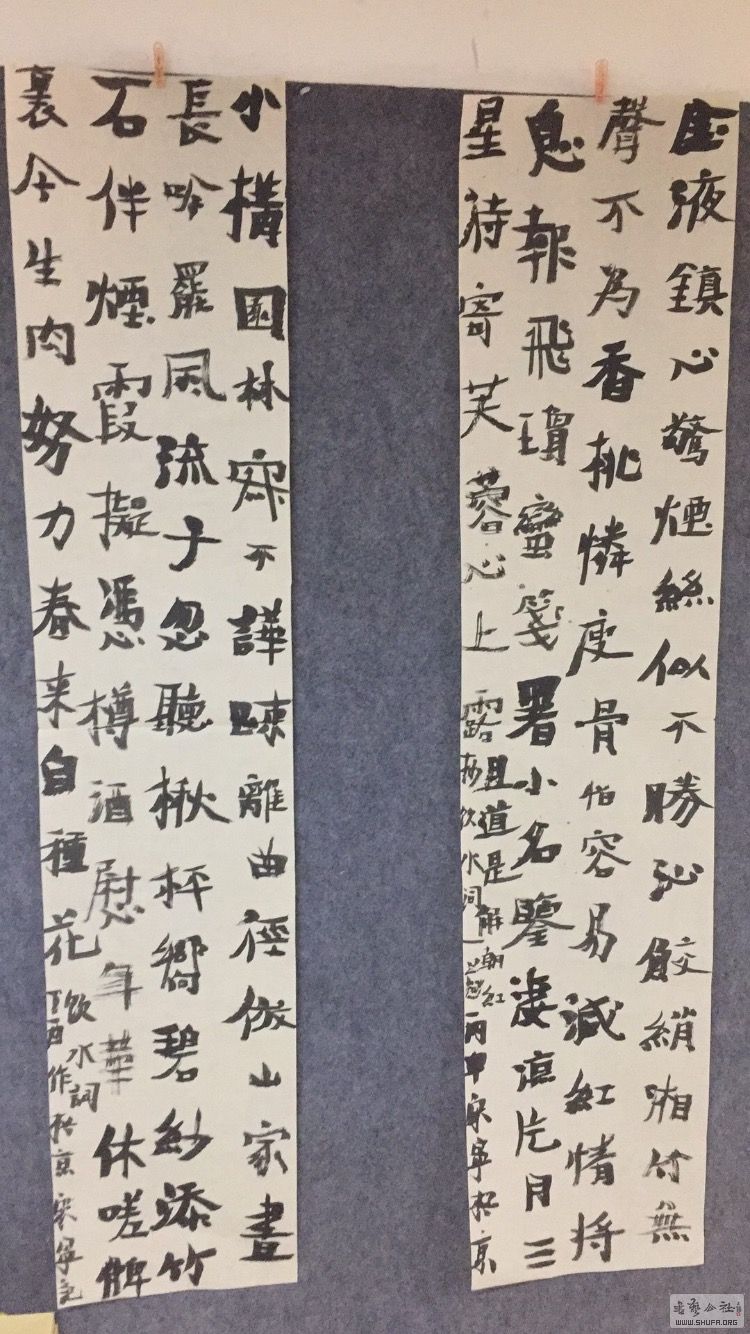 金液鎮心驚煙絲似不勝沁鮫綃湘竹無
聲不為香桃憐瘦骨怕容易減紅情將
息報飛瓊蠻箋署小名鑒淒涼片月三
星待寄芙蓉心上露
且道是解朝紅
抄飲水詞一 丙申宋寧於京
小構園林寂不譁疎離曲徑仿山家晝
長吟罷風流子忽聽楸枰響碧紗添竹
石伴煙霞擬憑樽酒慰年華休嗟髀
裏今生肉努力春来自種花
飲水詞
丁酉作於京宋寧
書藝公社
WWW.SHUFA.ORG